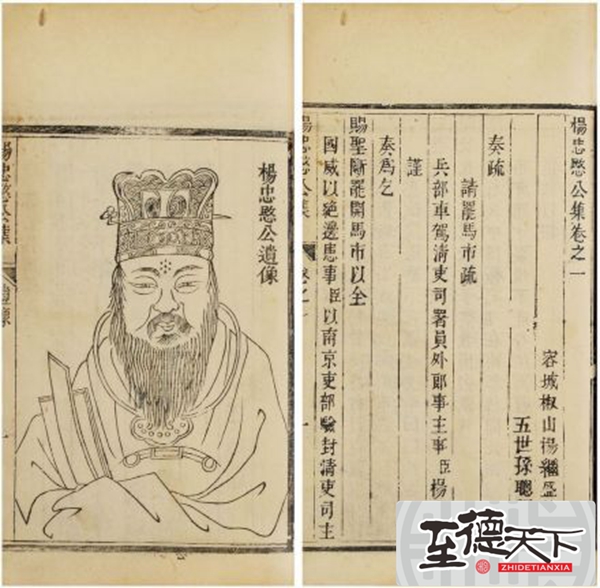 楊忠愍公遺像
楊忠愍公集
遺像
楊忠愍公集卷之一
容城椒山楊繼盛
五世孫聰
奏疏
請罷馬市疏
兵部車駕清吏司署員外郎事主事臣楊
謹
奏為乞
賜聖斷罷開馬市以全
國威以絕邊患事臣以南京吏部驗封清吏司主
楊忠愍公集
卷之一
至德天下
ZHIDETIANXIA